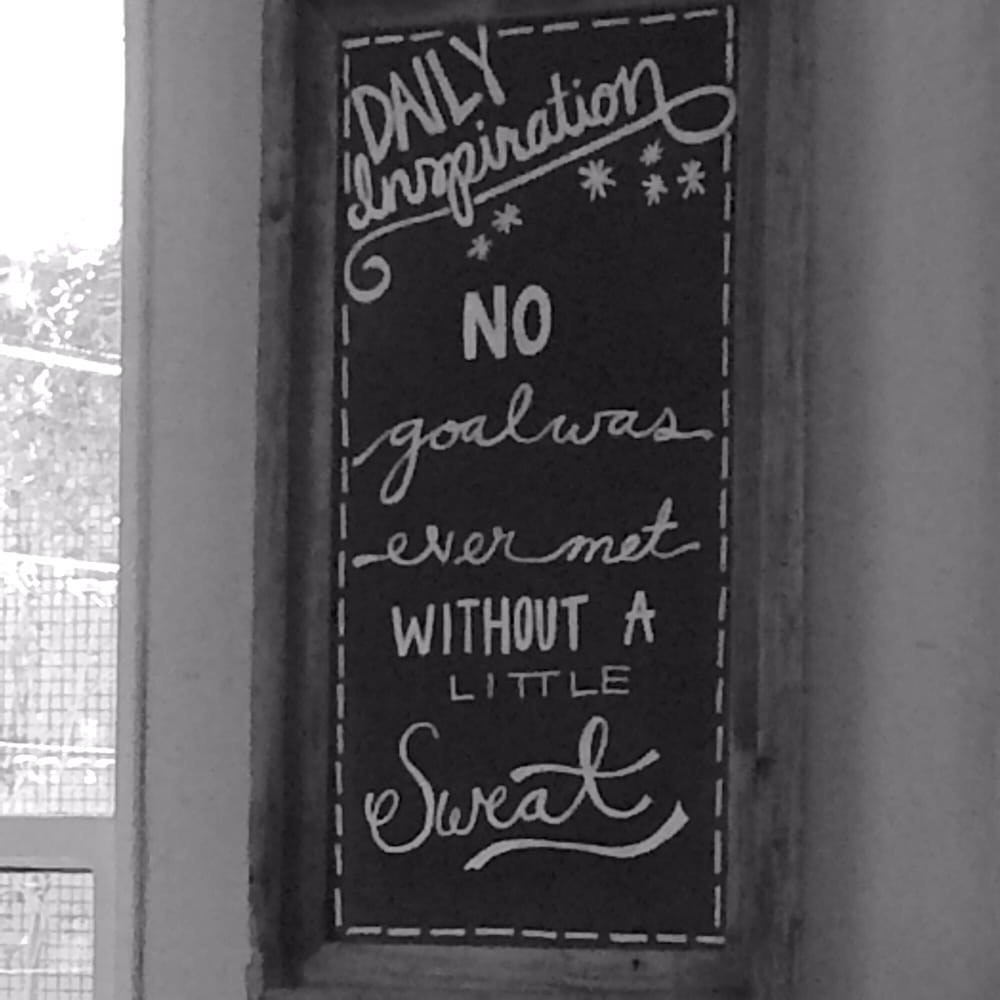 DAILY
Inspiration
NO
goal was
ever met
WITHOUT A
LITTLE
Sweat